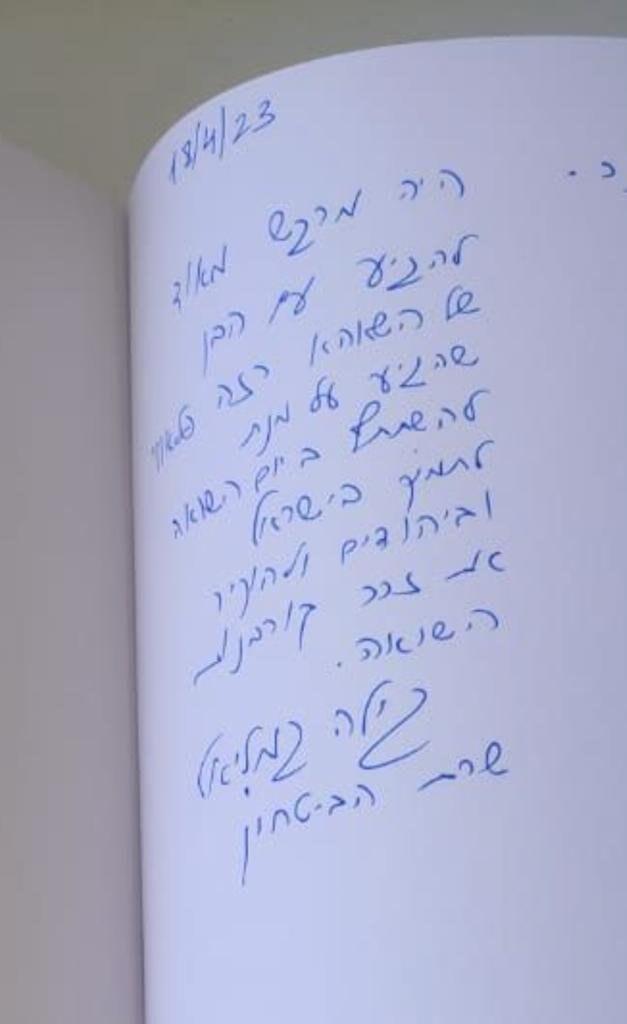 18/4/23
היה מרגש מאוד
להגיע עם הבן
של השאהא רזה פלאווי
שהגיע על מנת
להשתתף ביום השואה
לתמוך בישראל
וביהודים ולהוקיר
את זכר קורבנות
השואה.
גילה גמליאל
שרת הביטחון